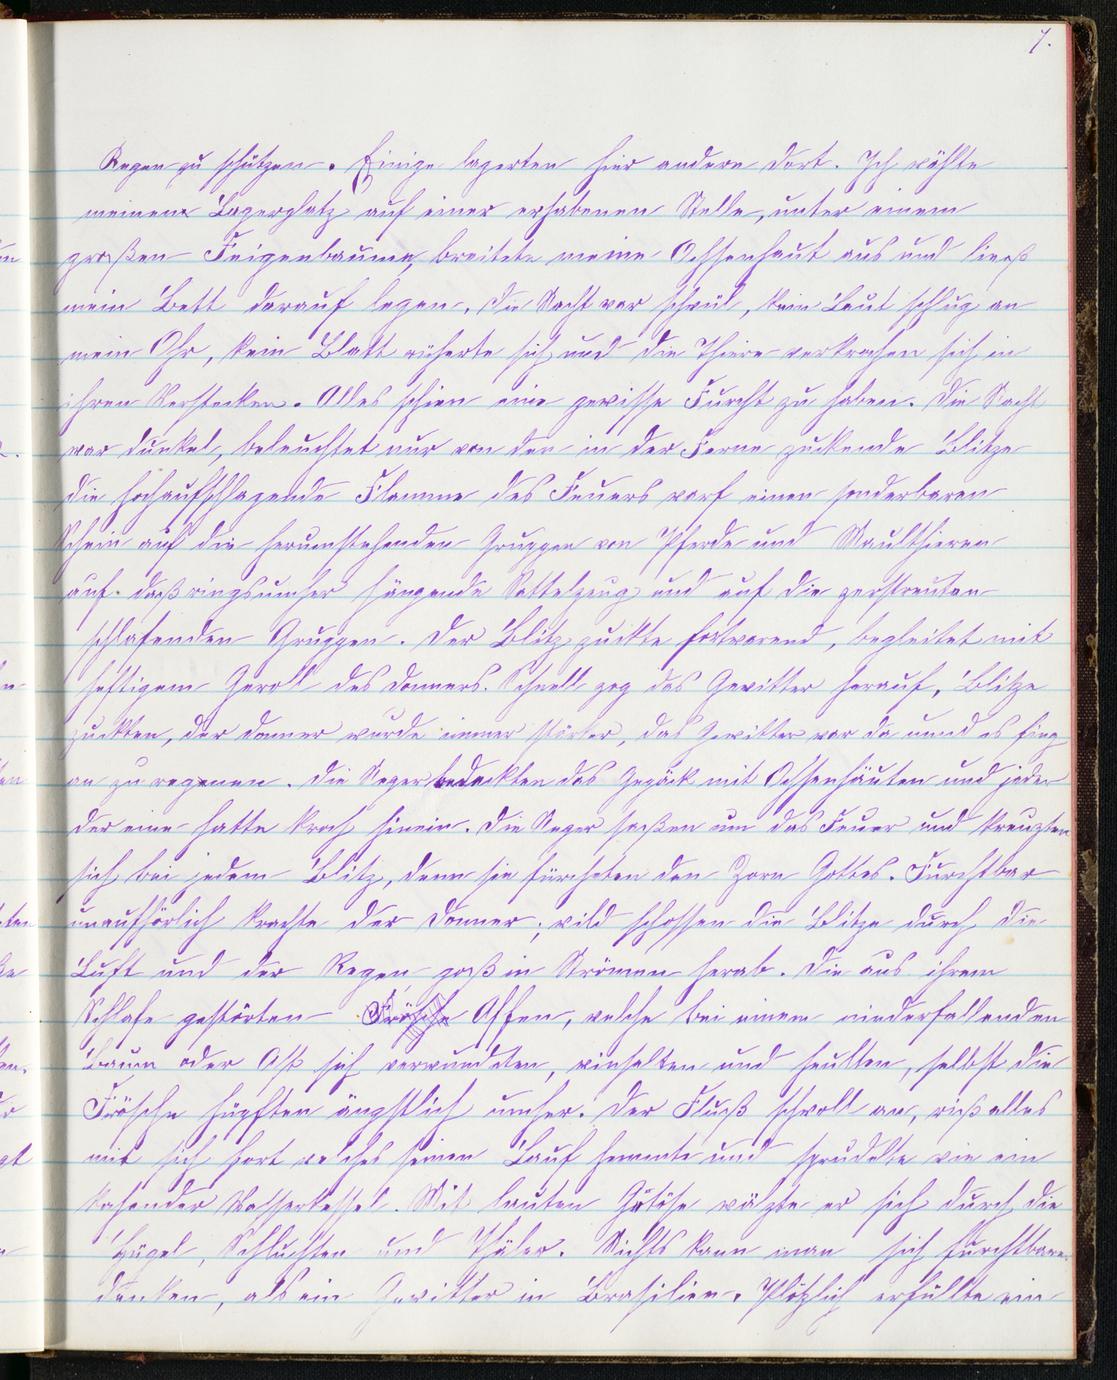 7.
Regen zu schützen. Einige lagerten hier andere dort. Ich wählte
meinen Lagerplatz auf einer erhabenen Stelle, unter einem
großen Feigenbaume, breitete meine Ochsenhaut aus und ließ
mein Bett darauf legen. Die Nacht war schwül, kein Laut schlug an
mein Ohr, kein Blatt rüherte sich und die Thiere verkrochen sich in
ihren Verstecken. Alles schien eine gewisse Furcht zu haben. Die Nacht
war dunkel, beleuchtet nur von den in der Ferne zuckende Blitze
die hochaufschlagende Flamme des Feuers warf einen sonderbaren
Schein auf die herumstehenden Gruppen von Pferde und Maulthieren
auf daß ringsumher hängende Sattelzeug und auf die zerstreuten
schlafenden Gruppen. Der Blitz zuckte fortwarend, begleitet mit
heftigem Geroll des Donners. Schnell zog das Gewitter herauf, Blitze
zuckten, der Donner wurde immer stärker, das Gewitter war da unnd es fing
an zu regenen. Die Neger bedeckten das Gepäck mit Ochsenhäuten und jeder
der eine hatte kroch hinein. Die Neger saßen um das Feuer und kreuzten
sich bei jedem Blitz, denn sie fürcheten den Zorn Gottes. Furchtbar
unaufhörlich krachte der Donner; wild schossen die Blitze durch die
Luft und der Regen goß in Strömen herab. Die aus ihrem
Schlafe gestörten Frösche Affen, welche bei einem niederfallenden
Baum oder Ast sich verwundeten, winselten und heulten, selbst die
Frösche hüpften ängstlich umher. Der Fluß schwoll an, riß alles
mit sich fort welches seinen Lauf hemmte und sprudelte wie ein
kochender Wasserkessel. Mit lauten Getöse wälzte er sich durch die
Hügel, Schluchten und Thäler. Nichts kann man sich furchtbarer
denken, als ein Gewitter in Brasilien. Plötzlich erfüllte ein